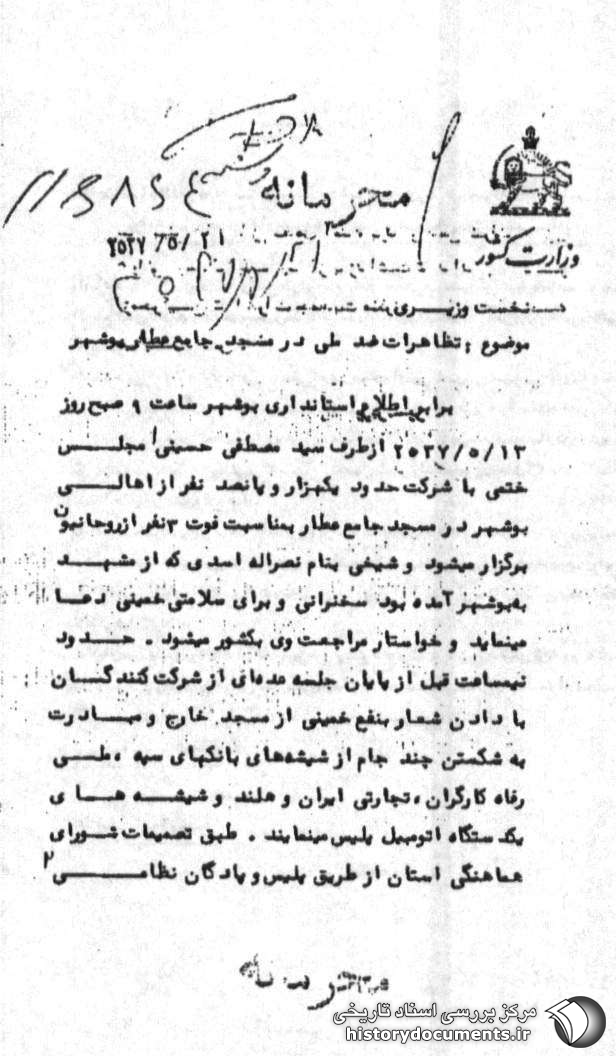 محرمانه
وزارت کشور
۲۵۳۷/۵/۲۱
نخست وزیری
موضوع : تظاهرات ضد ملی در مسجد جامع عطار بوشهر
برابر اطلاع استانداری بوشهر ساعت ۹ صبح روز
۲۵۳۷/۵/۱۳ ازطرف سید مصطفی حسینی مجلس
ختمی با شرکت حدود یکهزار و پانصد نفر از اهالی
بوشهر در مسجد جامع عطار بمناسبت فوت ۳نفر ازروحانیون
برگزار میشود و شیخی بنام نصراله اسدی که از مشهد
به‌بوشهر آمده بود سخنرانی و برای سلامتی خمینی دعا
مینماید و خواستار مراجعت وی بکشور میشود . حدود
نیمساعت قبل از پایان جلسه عده‌ای از شرکت کنندگان
با دادن شعار بنفع خمینی از مسجد خارج و مبادرت
به شکستن چند جام از شیشه‌های بانکهای سپه ، ملی
رفاه کارگران ، تجارتی ایران و هلند و شیشه های
یکدستگاه اتومبیل پلیس مینمایند . طبق تصمیمات شورای
هماهنگی استان از طریق پلیس و پادگان نظامی
محرمانه
مرکز بررسی اسناد تاریخی
historydocuments.ir